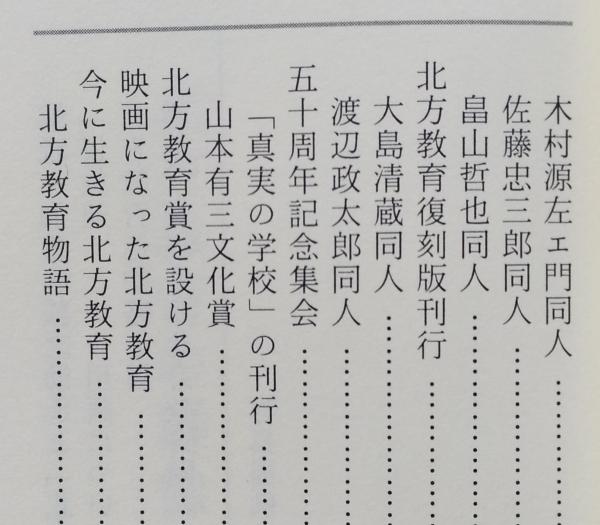 木村源左ェ門同人
佐藤忠三郎同人
畠山哲也同人
北方教育復刻版刊行
大島清蔵同人
渡辺政太郎同人
五十周年記念集会
「真実の学校」の刊行
山本有三文化賞
北方教育賞を設ける
映画になった北方教育
今に生きる北方教育
北方教育物語